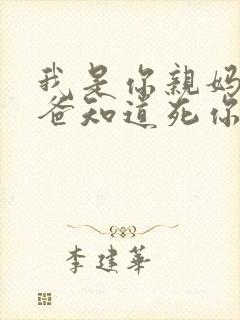 我是你親媽
爸知道死你
李建華